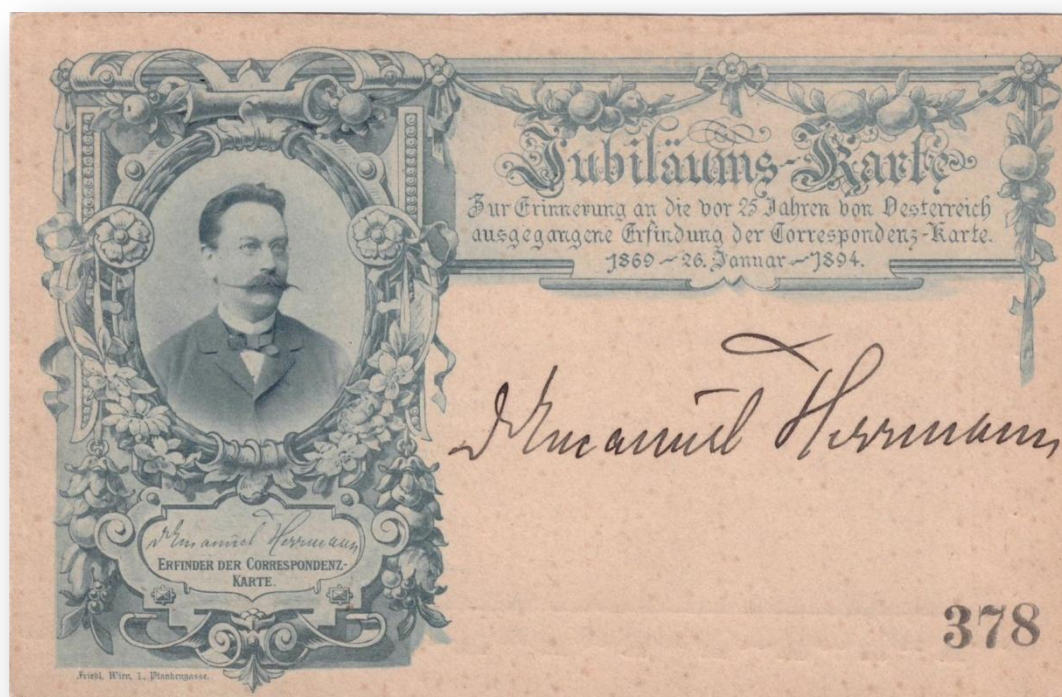 Jubiläums-Karte
Zur Erinnerung an die vor 25 Jahren von Oesterreich
ausgegangene Erfindung der Correspondenz-Karte.
1869 – 26. Januar – 1894.
Dr Emanuel Herrmann
Dr Emanuel Herrmann
ERFINDER DER CORRESPONDENZ-
KARTE.
378
Friedl, Wien, 1., Plankengasse.